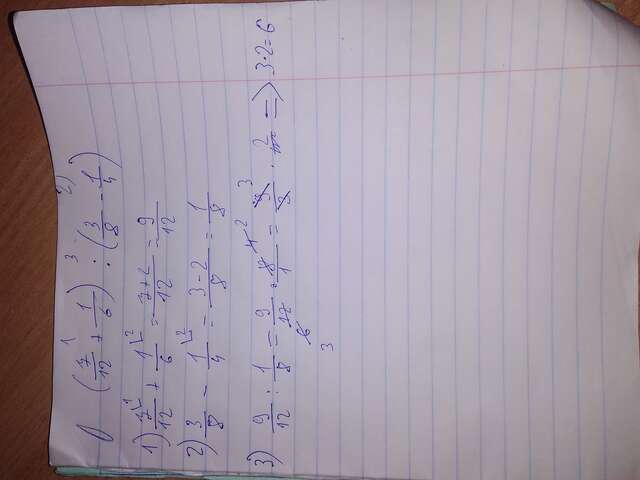 1) (7/12 + 1/6) : (3/8 - 1/4)
1) 7/12 + 1/6 = 7+2/12 = 9/12
2) 3/8 - 1/4 = 3-2/8 = 1/8
3) 9/12 : 1/8 = 9/12 · 8/1 = 9/3 · 2/1 => 3·2=6